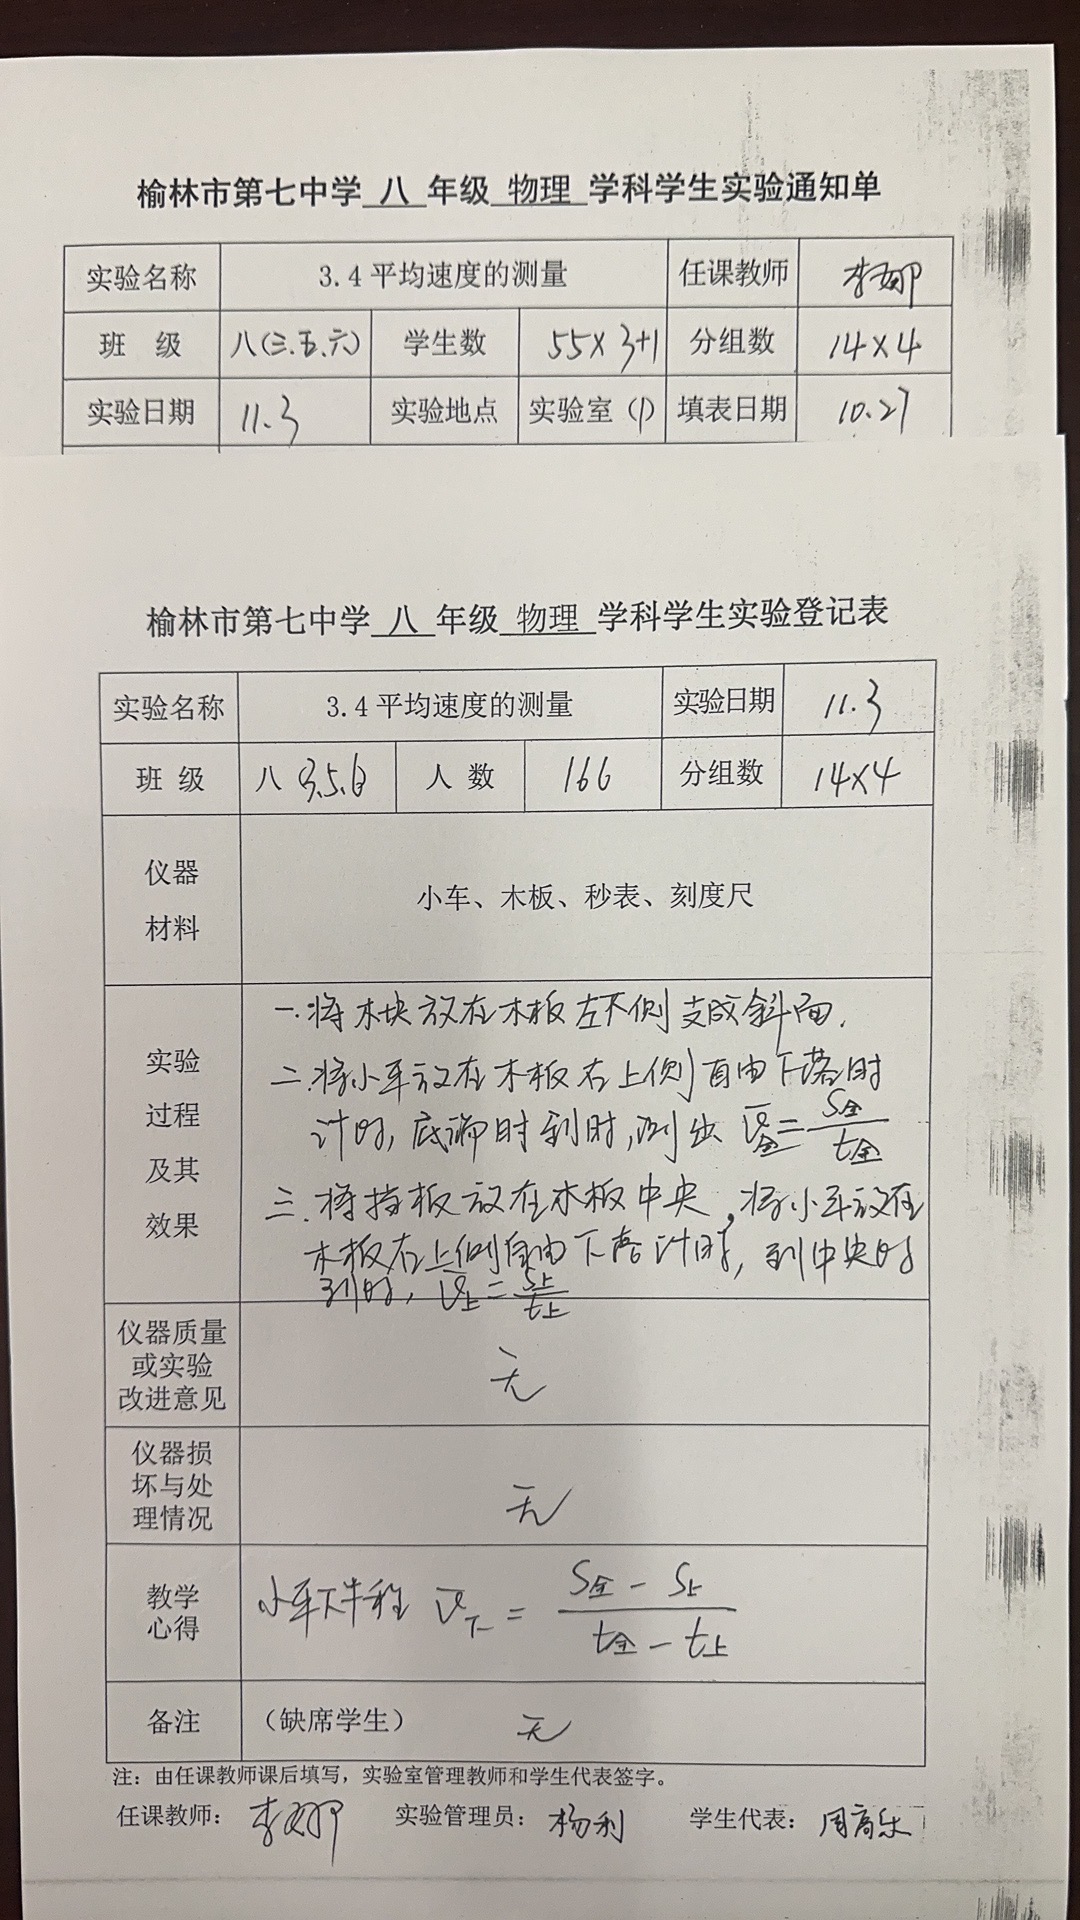 榆林市第七中学 八 年级 物理 学科学生实验通知单
实验名称 3.4平均速度的测量 任课教师 李娜
班 级 八(三.五.六) 学生数 55×3+1 分组数 14×4
实验日期 11.3 实验地点 实验室(1) 填表日期 10.27
榆林市第七中学 八 年级 物理 学科学生实验登记表
实验名称 3.4平均速度的测量 实验日期 11.3
班 级 八 3.5.6 人 数 166 分组数 14×4
仪器
材料
小车、木板、秒表、刻度尺
实验
过程
及其
效果
一.将木块放在木板左下侧支成斜面.
二.将小车放在木板右上侧自由下落时
计时,底端时到时,测出 v̄全=S全/t全
三.将挡板放在木板中央,将小车放在
木板右上侧自由下落计时,到中央时
到时,v̄上=S上/t上
仪器质量
或实验
改进意见
无
仪器损
坏与处
理情况
无
教学
心得
小车下半程 v̄下 = (S全-S上)/(t全-t上)
备注 (缺席学生) 无
注:由任课教师课后填写,实验室管理教师和学生代表签字。
任课教师:李娜 实验管理员:杨利 学生代表:周高乐